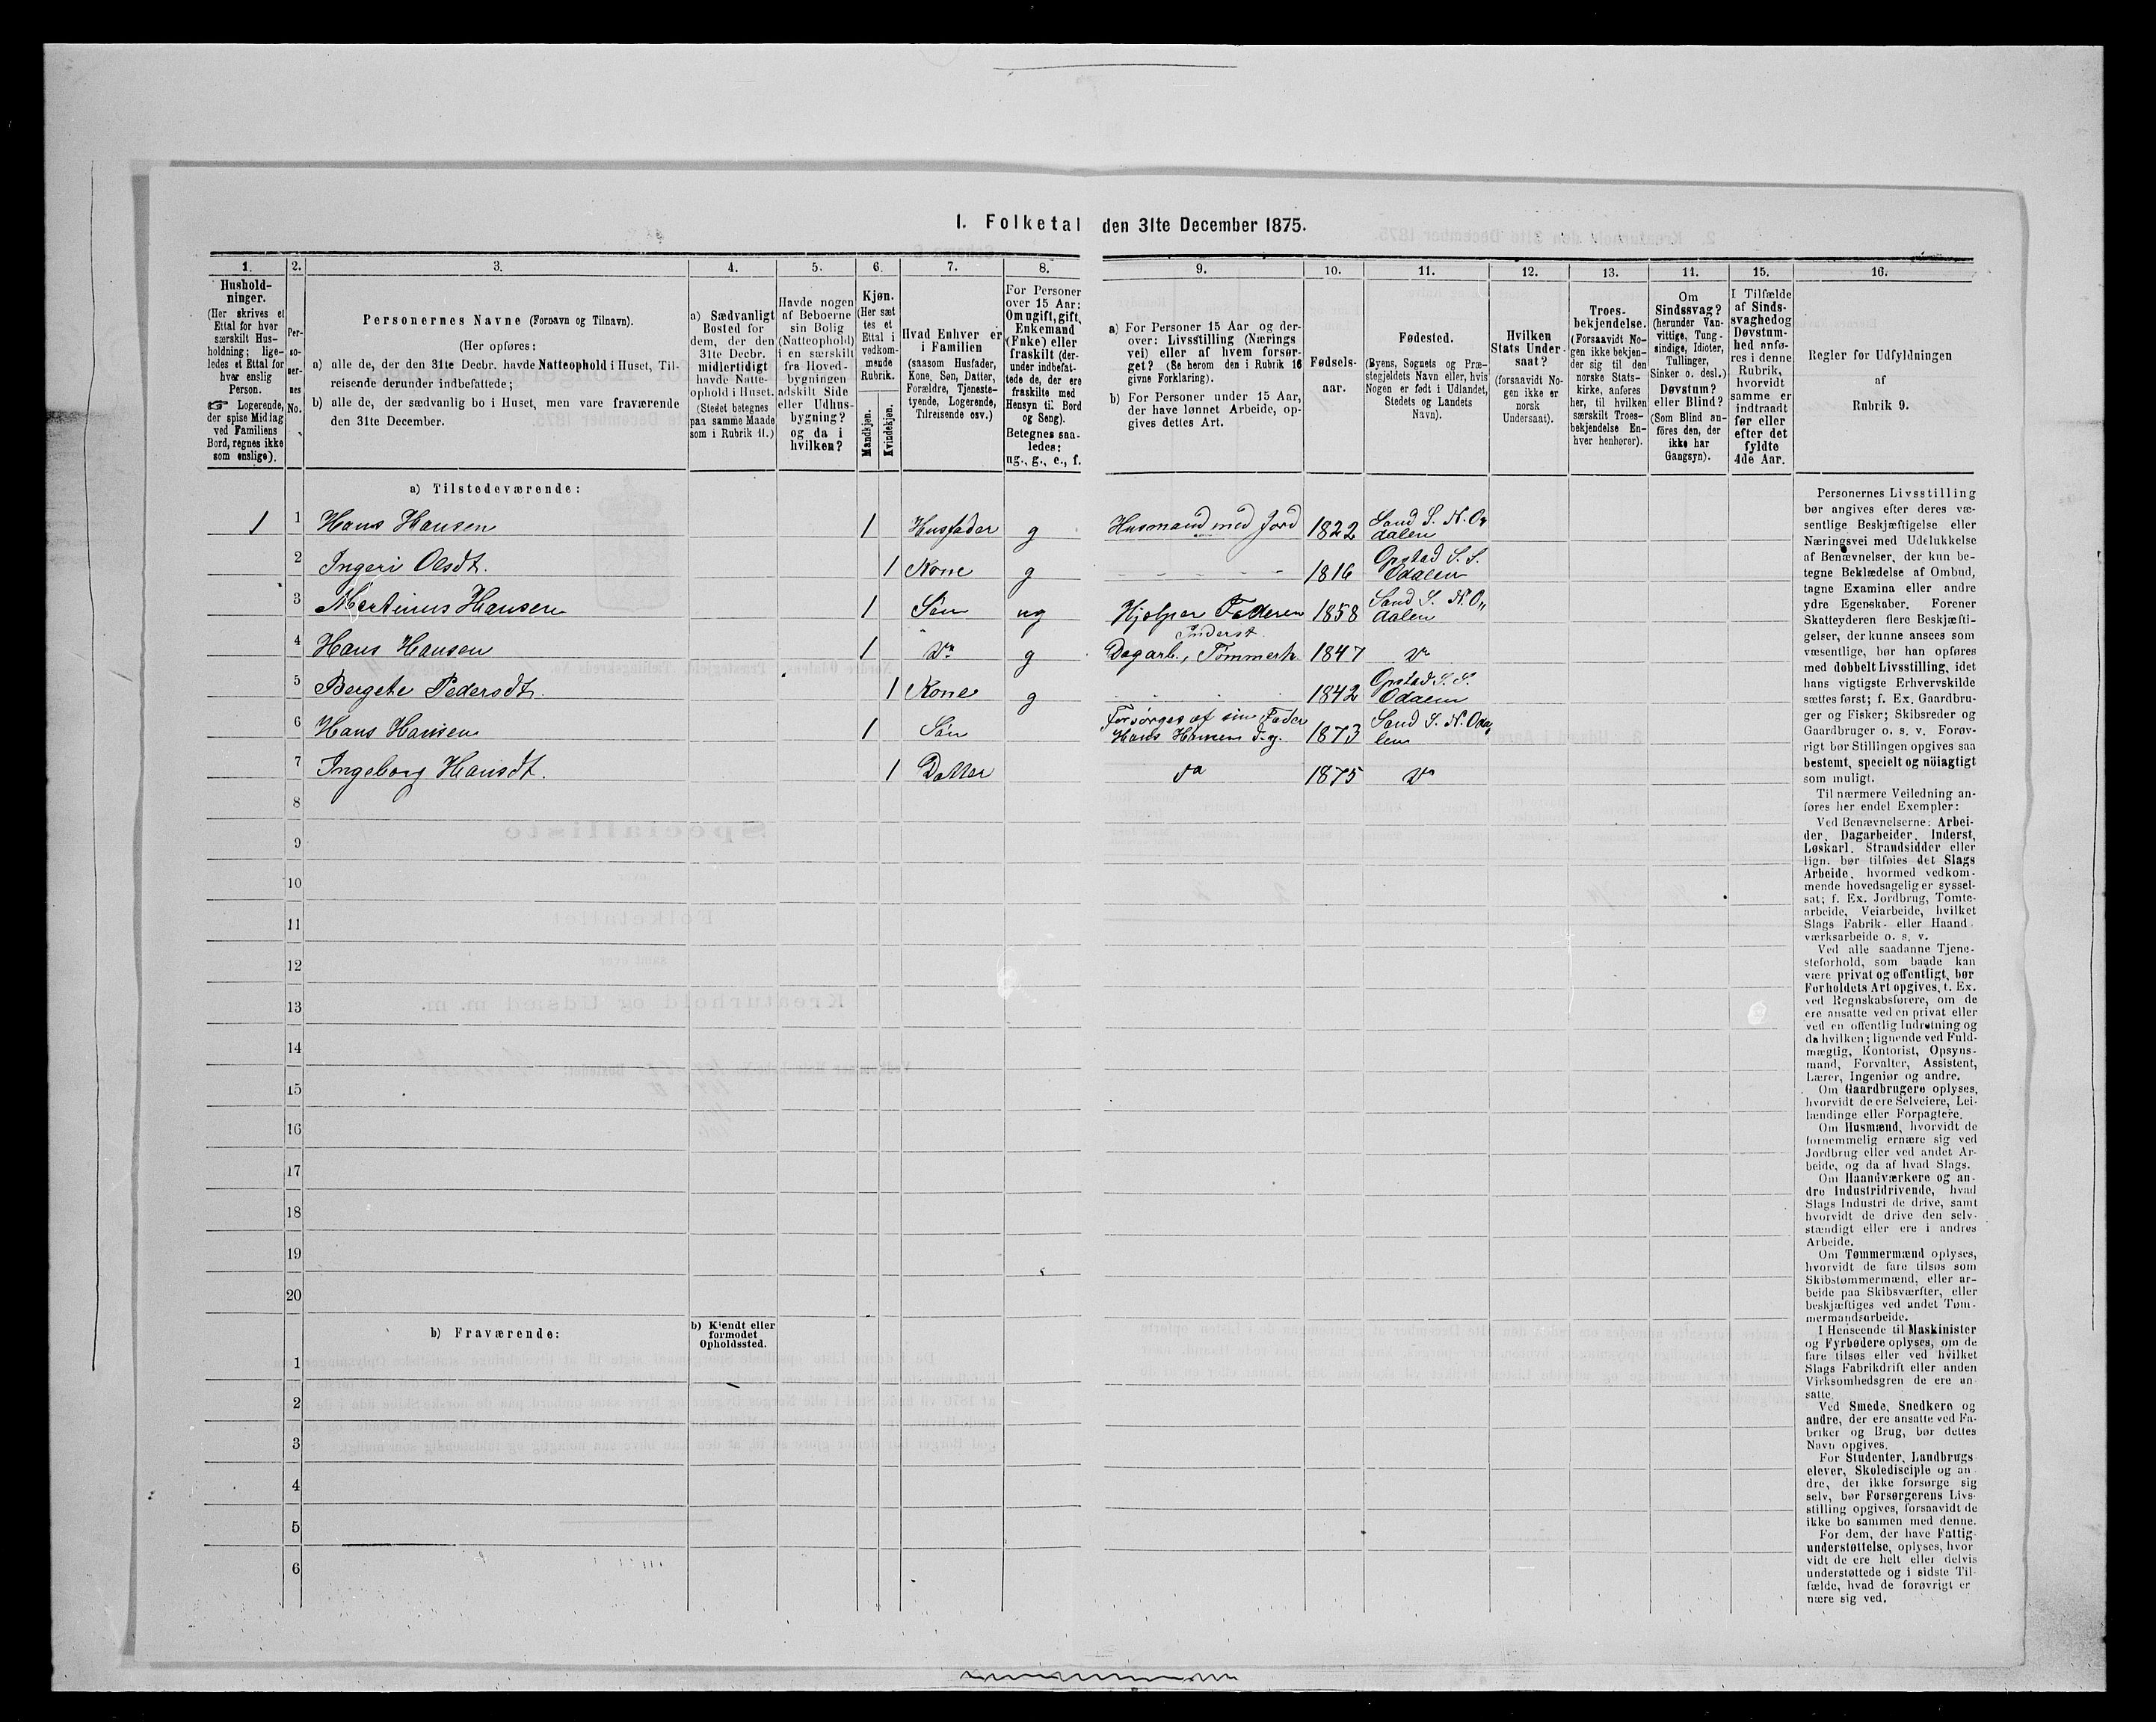 I. Folketal den 31te December 1875.
1. 2. 3. 4. 5. 6. 7. 8. 9. 10. 11. 12. 13. 14. 15. 16.
Hushold-
ninger.
(Her skrives et
Ettal for hver
særskilt Hus-
holdning; lige-
ledes et Ettal for
hver enslig
Person.
☞ Logerende,
der spise Middag
ved Familiens
Bord, regnes ikke
som enslige).
Per-
so-
ner-
nes
No.
Personernes Navne (Fornavn og Tilnavn).
(Her opføres:
a) alle de, der den 31te Decbr. havde Natteophold i Huset, Til-
reisende derunder indbefattede;
b) alle de, der sædvanlig bo i Huset, men vare fraværende
den 31te December.
a) Sædvanligt
Bosted for
dem, der den
31te Decbr.
midlertidigt
havde Natte-
ophold i Huset.
(Stedet betegnes
paa samme Maade
som i Rubrik 11.)
Havde nogen
af Beboerne
sin Bolig
(Natteophold)
i en særskilt
fra Hoved-
bygningen
adskilt Side
eller Udhus-
bygning?
og da i
hvilken?
Kjøn.
(Her sæt
tes et
Ettal i
vedkom-
mende
Rubrik.
Mandkjøn.
Kvindekjøn.
Hvad Enhver er
i Familien
(saasom Husfader,
Kone, Søn, Datter,
Forældre, Tjeneste-
tyende, Logerende,
Tilreisende osv.)
For Personer
over 15 Aar:
Om ugift, gift,
Enkemand
(Enke) eller
fraskilt (der-
under indbefat-
tede de, der ere
fraskilte med
Hensyn til Bord
og Seng).
Betegnes saa-
ledes:
ug., g., e., f.
a) For Personer 15 Aar og der-
over: Livsstilling (Nærings
vei) eller af hvem forsør-
get? (Se herom den i Rubrik 16
givne Forklaring).
b) For Personer under 15 Aar,
der have lønnet Arbeide, op-
gives dettes Art.
Fødsels-
aar.
Fødested.
(Byens, Sognets og Præ-
stegjeldets Navn eller, hvis
Nogen er født i Udlandet,
Stedets og Landets
Navn).
Hvilken
Stats Under-
saat?
(forsaavidt No-
gen ikke er
norsk
Undersaat).
Troes-
bekjendelse.
(Forsaavidt No-
gen ikke bekjen-
der sig til den
norske Stats-
kirke, anføres
her, til hvilken
særskilt Troes-
bekjendelse En-
hver henhører).
Om
Sindssvag?
(herunder Van-
vittige, Tung-
sindige, Idioter,
Tullinger,
Sinker o. desl.)
Døvstum?
eller Blind?
(Som Blind an-
föres den, der
ikke har
Gangsyn).
I Tilfælde
af Sinds-
svaghed og
Døvstum-
hed anfø-
res i denne
Rubrik,
hvorvidt
samme er
indtraadt
før eller
efter det
fyldte
4de Aar.
Regler for Udfyldningen
af
Rubrik 9.
a) Tilstedeværende:
1 1 Hans Hansen 1 Husfader g Husmand med Jord 1822 Sand S. N. O„
dalen
2 Ingeri Olsdt. 1 Kone g - - - - - 1816 Opstad S. S.
Odalen
3 Martinus Hansen 1 Søn ug Hjelper Faderen 1858 Sand S. N. O„
dalen
Inderst
4 Hans Hansen 1 Do g Dagarb., Tømmerh. 1847 Do
5 Bergete Pedersdt. 1 Kone g 1842 Opstad S. S.
Odalen
Forsørges af sin Fader
6 Hans Hansen 1 Søn Hans Hansen d.y. 1873 Sand S. N. Oda„
len
7 Ingeborg Hansdt. 1 Datter da 1875 Do
8
9
10
11
12
13
14
15
16
17
18
19
20
b) Fraværende:
b) Kjendt eller
formodet
Opholdssted.
1
2
3
4
5
6
Personernes Livsstilling
bør angives efter deres væ-
sentlige Beskjæftigelse eller
Næringsvei med Udelukkelse
af Benævnelser, der kun be-
tegne Beklædelse af Ombud,
tagne Examina eller andre
ydre Egenskaber. Forener
Skatteyderen flere Beskjæfti-
gelser, der kunne ansees som
væsentlige, bør han opføres
med dobbelt Livsstilling, idet
hans vigtigste Erhvervskilde
sættes først; f. Ex. Gaardbru-
ger og Fisker; Skibsreder og
Gaardbruger o. s. v. Forøv-
rigt bør Stillingen opgives saa
bestemt, specielt og nöiagtigt
som muligt.
Til nærmere Veiledning an-
føres her endel Exempler:
Ved Benævnelserne: Arbei-
der, Dagarbeider, Inderst,
Løskarl, Strandsidder eller
lign. bør tilføies det Slags
Arbeide, hvormed vedkom-
mende hovedsagelig er syssel-
sat; f. Ex. Jordbrug, Tomte-
arbeide, Veiarbeide, hvilket
Slags Fabrik- eller Haand
værksarbeide o. s. v.
Ved alle saadanne Tjene-
steforhold, som baade kan
være privat og offentligt, bør
Forholdets Art opgives, t. Ex.
ved Regnskabsførere, om de
ere ansatte ved en privat eller
ved en offentlig Indretning og
da hvilken; lignende ved Fuld-
mægtig, Kontorist, Opsyns-
mand, Forvalter, Assistent,
Lærer, Ingeniør og andre.
Om Gaardbrugere oplyses,
hvorvidt de ere Selveiere, Lei-
lændinge eller Forpagtere.
Om Husmænd, hvorvidt de
fornemmelig ernære sig ved
Jordbrug eller ved andet Ar-
beide, og da af hvad Slags.
Om Haandværkere og an-
dre Industridrivende, hvad
Slags Industri de drive, samt
hvorvidt de drive den selv-
stændigt eller ere i andres
Arbeide.
Om Tømmermænd oplyses,
hvorvidt de fare tilsøs som
Skibstømmermænd, eller ar-
beide paa Skibsværfter, eller
beskjæftiges ved andet Tøm-
mermandsarbeide.
I Henseende til Maskinister
og Fyrbødere oplyses, om de
fare tilsøs eller ved hvilket
Slags Fabrikdrift eller anden
Virksomhedsgren de ere an-
satte.
Ved Smede, Snedkere og
andre, der ere ansatte ved Fa-
briker og Brug, bør dettes
Navn opgives.
For Studenter, Landbrugs
elever, Skoledisciple og an
dre, der ikke forsørge sig
selv, bør Forsørgerens Livs-
stilling opgives, forsaavidt de
ikke bo sammen med denne.
For dem, der have Fattig-
understøttelse, oplyses, hvor
vidt de ere helt eller delvis
understøttede og i sidste Til-
fælde, hvad de forøvrigt er
nære sig ved.